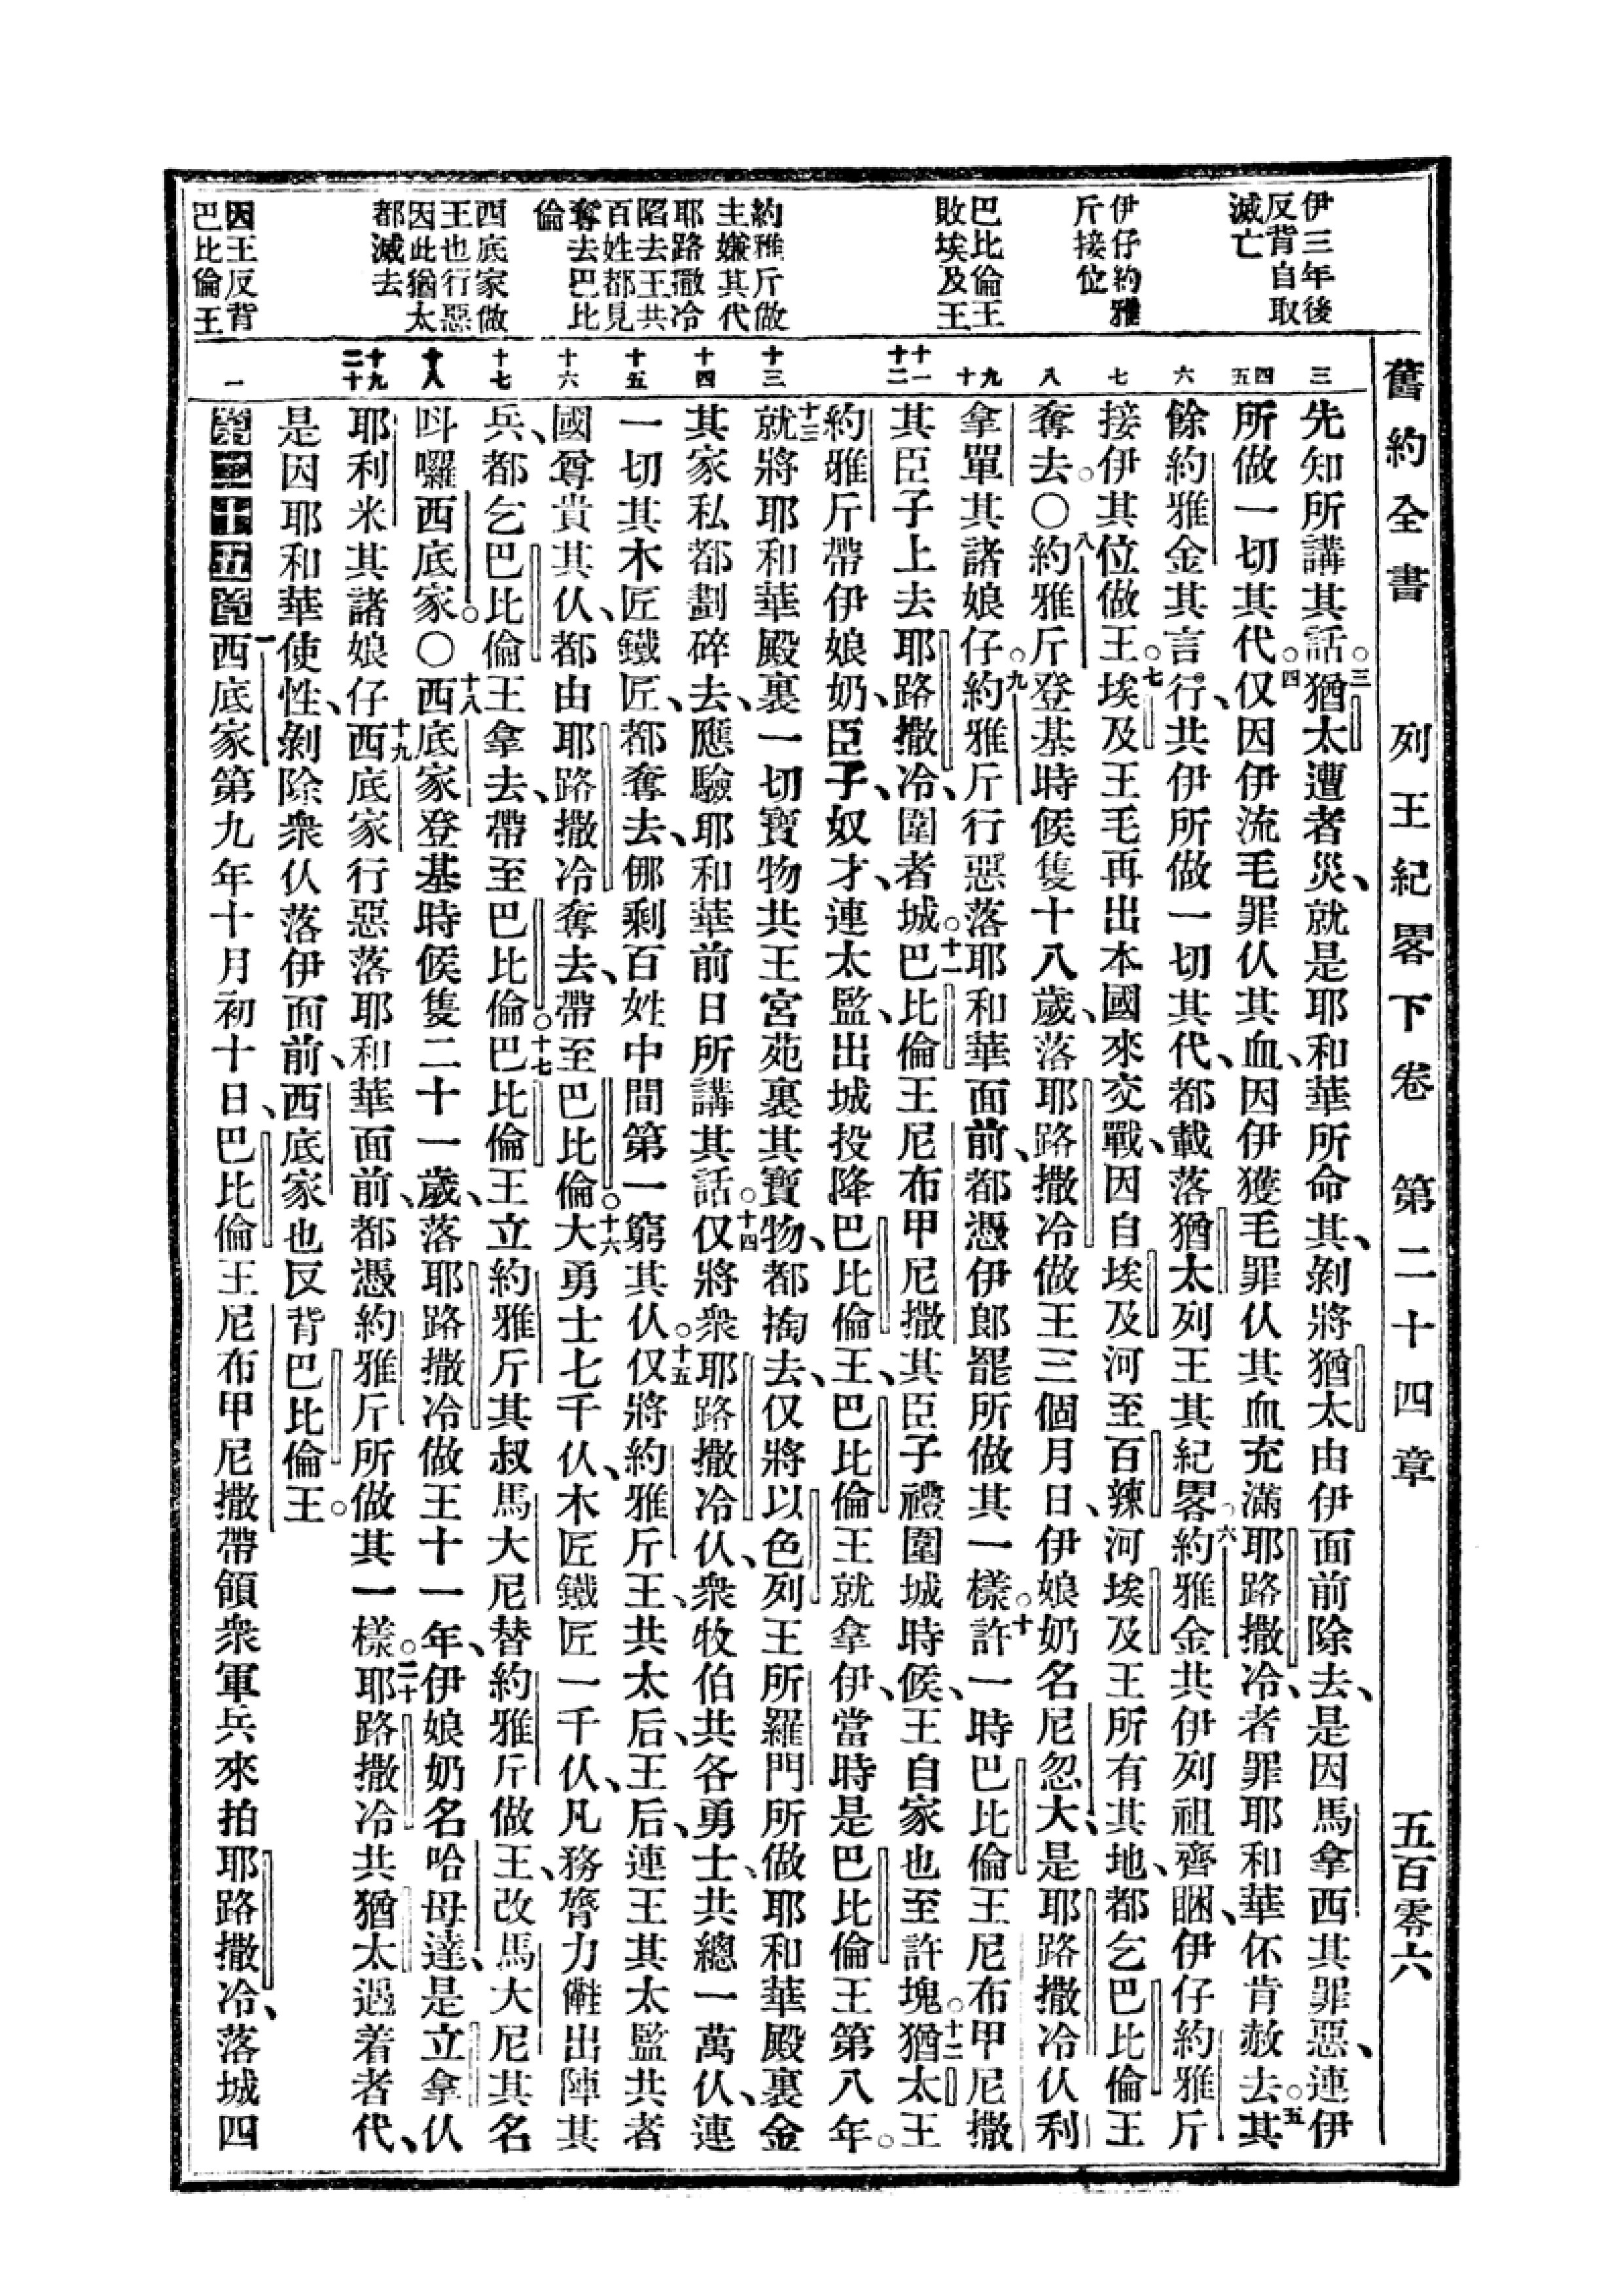 舊約全書 列王紀畧下卷 第二十四章 五百零六
伊三年後
反背自取
滅亡
伊仔約雅
斤接位
巴比倫王
敗埃及王
約雅斤做
主嫌其代
耶路撒冷
陷去王共
百姓都見
奪去巴比
倫
西底家做
王也行惡
因此猶太
都滅去
因王反背
巴比倫王
三
四
五
六
七
八
九
十
十一
十二
十三
十四
十五
十六
十七
十八
十九
二十
一
先知所講其話。三猶太遭者災、就是耶和華所命其、剝將猶太由伊面前除去、是因馬拿西其罪惡、連伊
所做一切其代。四仅因伊流毛罪仈其血、因伊獲毛罪仈其血充滿耶路撒冷、者罪耶和華伓肯赦去。五其
餘約雅金其言行、共伊所做一切其代、都載落猶太列王其紀畧。六約雅金共伊列祖齊睏、伊仔約雅斤
接伊其位做王。七埃及王毛再出本國來交戰、因自埃及河至百辣河埃及王所有其地、都乞巴比倫王
奪去。〇八約雅斤登基時候隻十八歲、落耶路撒冷做王三個月日、伊娘奶名尼忽大、是耶路撒冷仈利
拿單其諸娘仔。九約雅斤行惡落耶和華面前、都憑伊郎罷所做其一樣。十許一時巴比倫王尼布甲尼撒
其臣子上去耶路撒冷、圍者城。十一巴比倫王尼布甲尼撒其臣子禮圍城時候、王自家也至許塊。十二猶太王
約雅斤帶伊娘奶、臣子、奴才、連太監、出城投降巴比倫王、巴比倫王就拿伊、當時是巴比倫王第八年。
十三就將耶和華殿裏一切寶物共王宮苑裏其寶物、都掏去、仅將以色列王所羅門所做耶和華殿裏金
其家私都劃碎去、應驗耶和華前日所講其話。十四仅將衆耶路撒冷仈、衆牧伯共各勇士、共總一萬仈、連
一切其木匠、鐵匠、都奪去、倻剩百姓中間第一窮其仈。十五仅將約雅斤王、共太后、王后、連王其太監共者
國尊貴其仈、都由耶路撒冷奪去、帶至巴比倫。十六大勇士七千仈、木匠鐵匠一千仈、凡務膂力㑚出陣其
兵、都乞巴比倫王拿去、帶至巴比倫。十七巴比倫王立約雅斤其叔馬大尼替約雅斤做王、改馬大尼其名
呌囉西底家。〇十八西底家登基時候隻二十一歲、落耶路撒冷做王十一年、伊娘奶名哈母達、是立拿仈
耶利米其諸娘仔。十九西底家行惡落耶和華面前、都憑約雅斤所做其一樣。二十耶路撒冷共猶太遇着者代、
是因耶和華使性、剝除衆仈落伊面前、西底家也反背巴比倫王。
第二十五章一西底家第九年十月初十日、巴比倫王尼布甲尼撒帶領衆軍兵來拍耶路撒冷、落城四